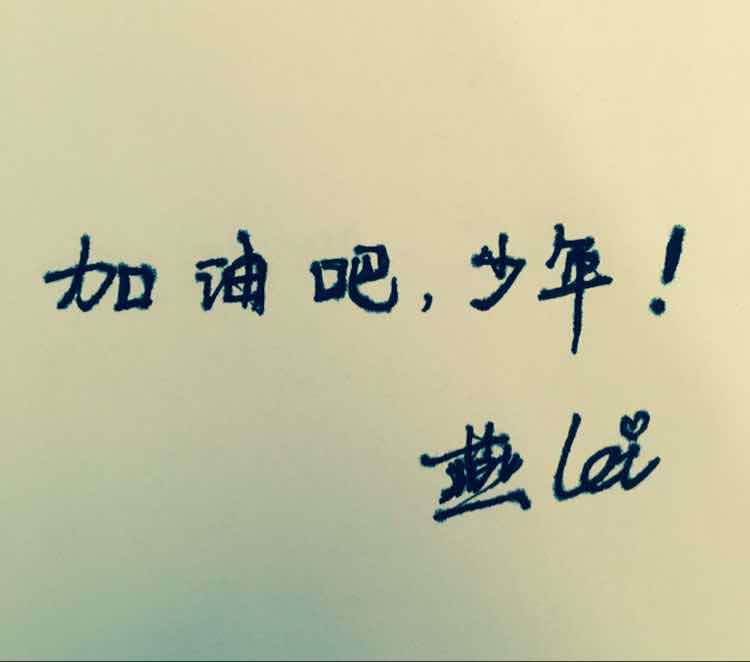 加油吧，少年！
燕lei